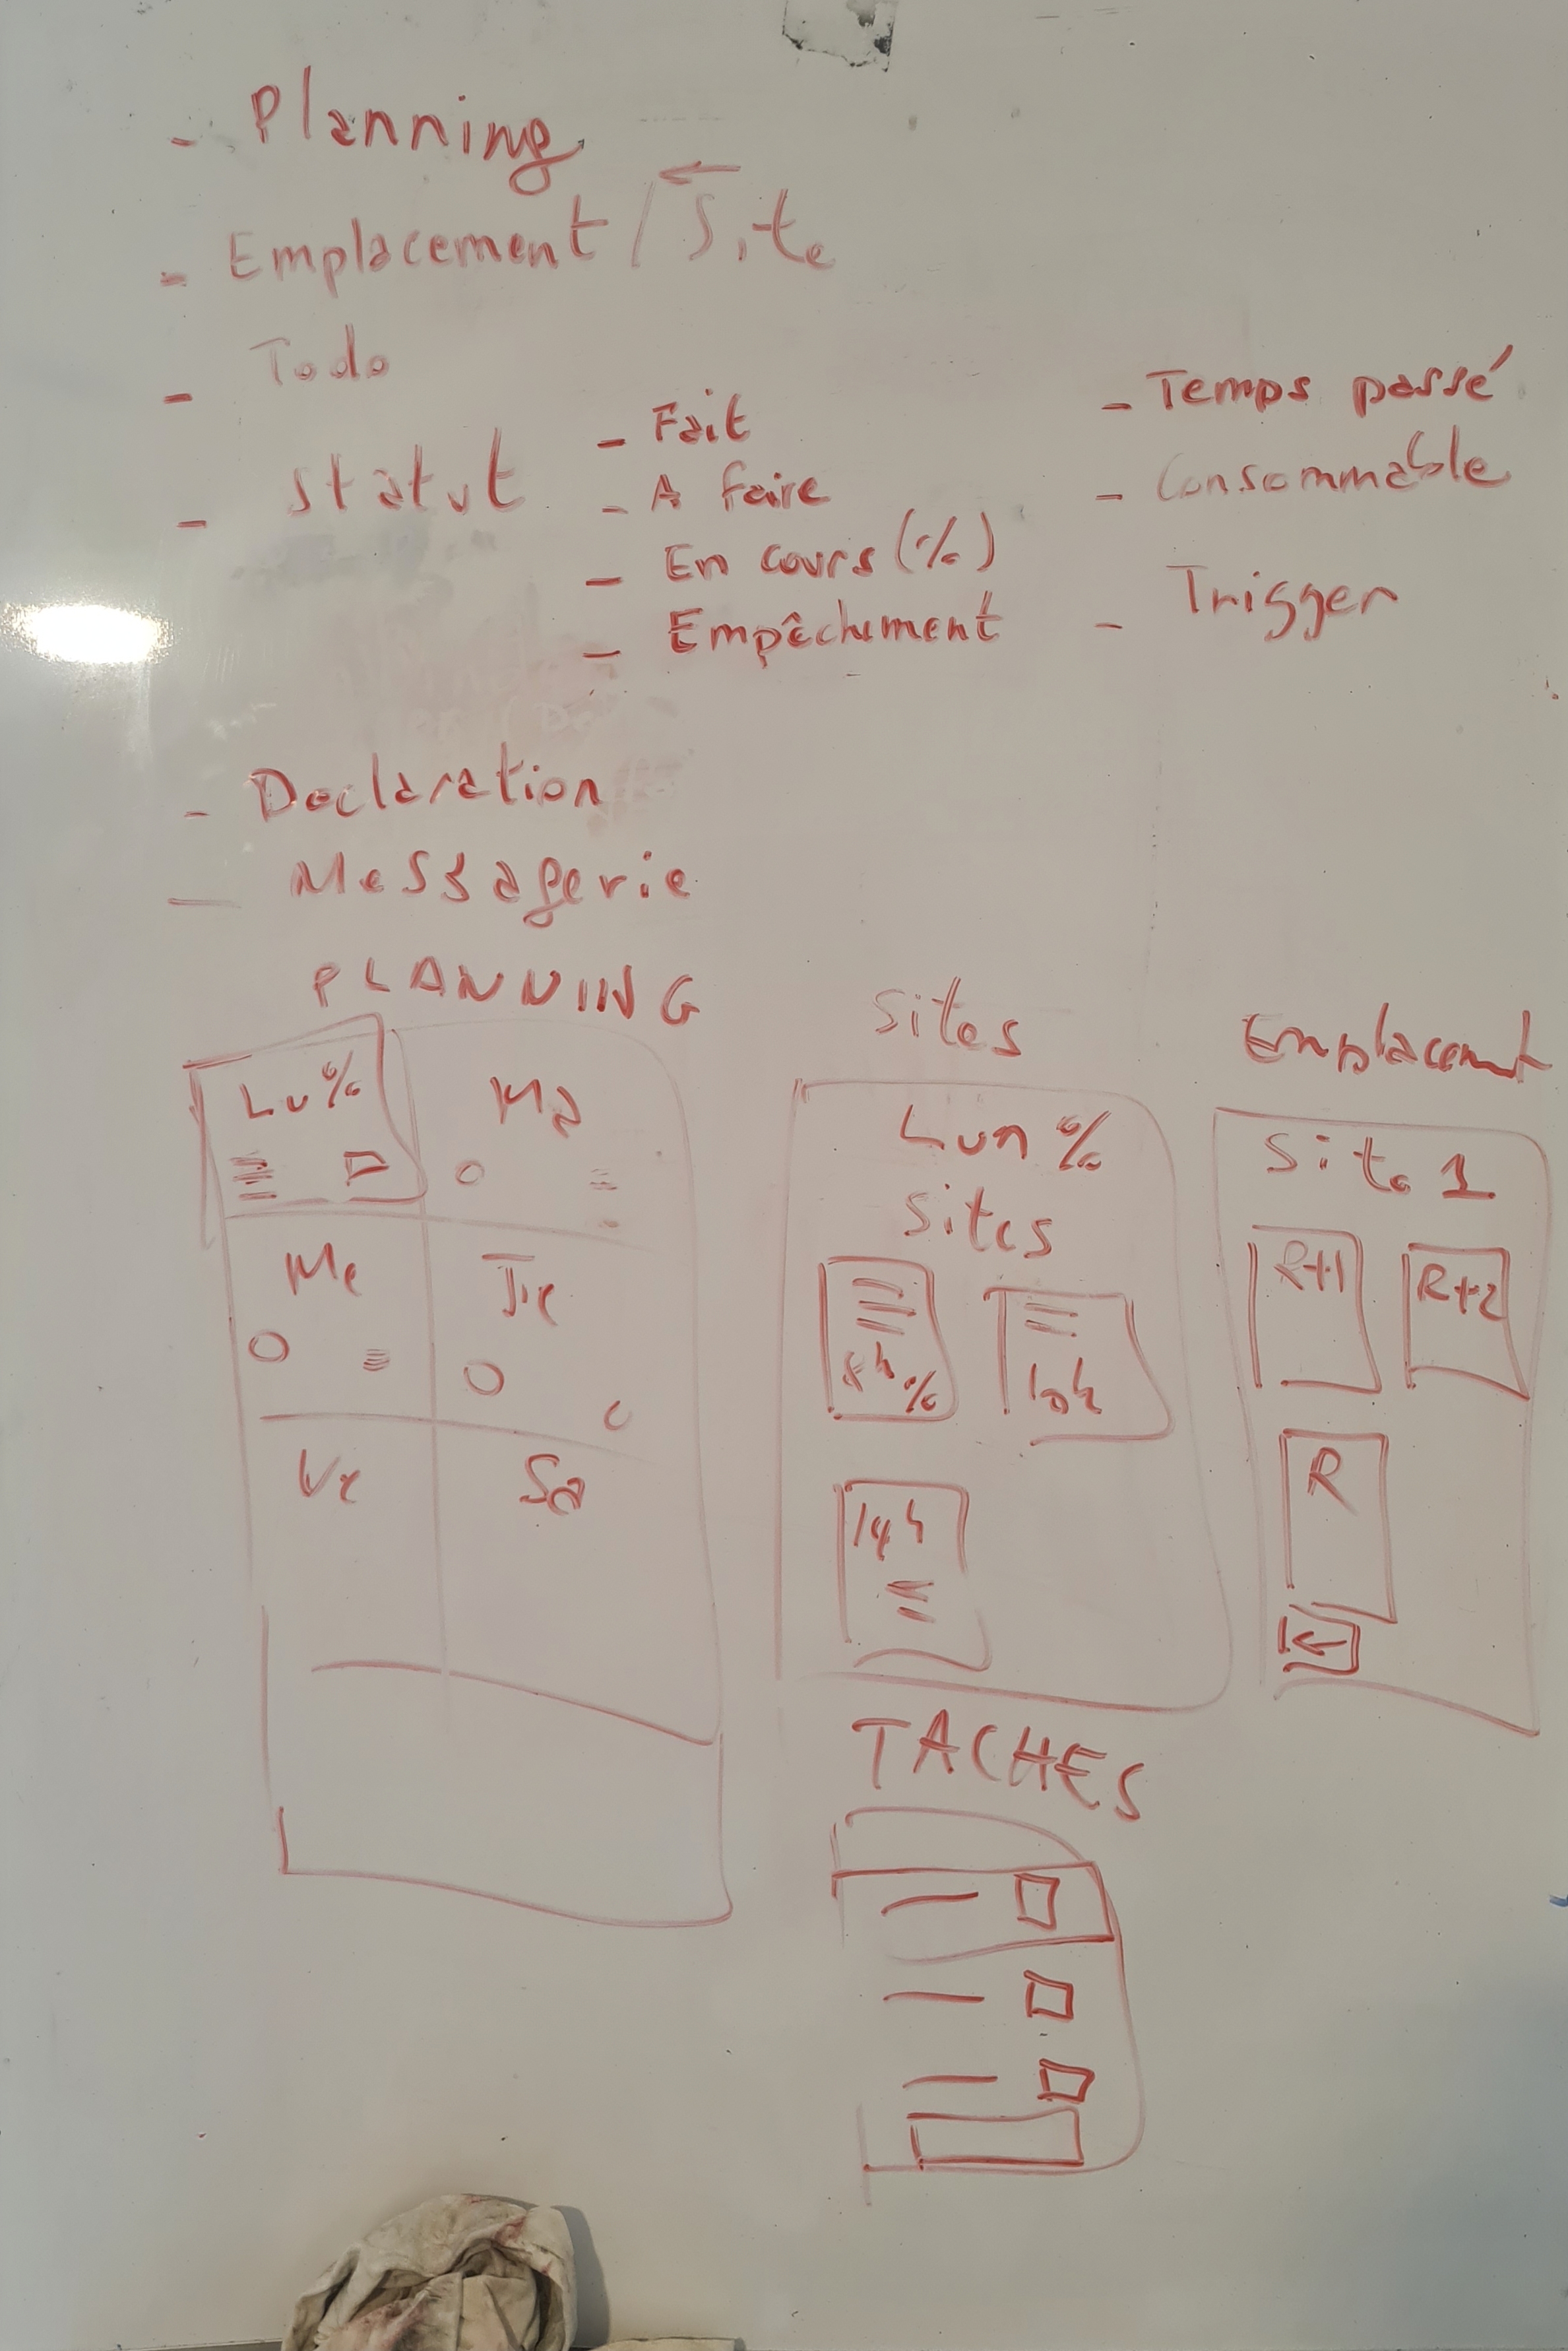 - Planning
- Emplacement / Site
- Todo
- Statut
- Fait
- A faire
- En cours (%)
- Empêchement
- Temps passé
- Consommable
- Trigger
- Declaration
- Messagerie
PLANNING
Lu %
Ma
Me
Je
Ve
Sa
Sites
Lun %
Sites
8h %
10h
14h
Emplacement
Site 1
R+1
R+2
R
TACHES